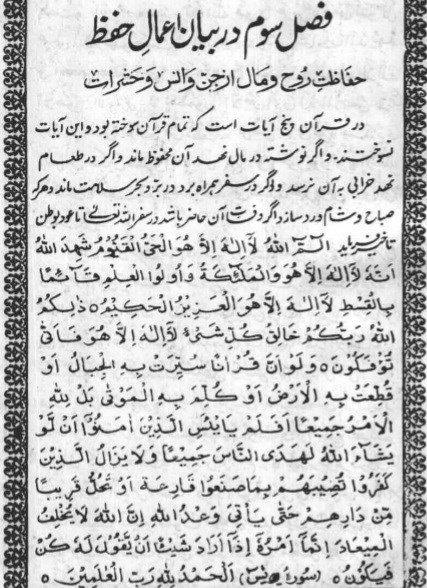 فصل سوم در بیان اعمال حفظ
حفاظت روح و مال از جن و انس و حشرات
در قرآن پنج آیات است که تمام قرآن سوخته بود و این آیات
نسوختند، و اگر نوشته در مال نهد آن محفوظ ماند و اگر در طعام
نهد خرابی به آن نرسد و اگر در سفر همراه برد در بر و بحر سلامت ماند و هر که
صباح و شام ورد سازد اگر وقت آن حاضر باشد در سفر الله تعالے تا عود بوطن
تاخیر فرماید الٓمّٓ اللهُ لَآ اِلٰهَ اِلَّا هُوَ الْحَیُّ الْقَیُّوْمُ شَهِدَ اللهُ
اَنَّهٗ لَآ اِلٰهَ اِلَّا هُوَ وَالْمَلٰٓئِكَةُ وَ اُولُوا الْعِلْمِ قَآئِمًا
بِالْقِسْطِ لَآ اِلٰهَ اِلَّا هُوَ الْعَزِیْزُ الْحَكِیْمُ ٥ ذٰلِكُمُ
اللهُ رَبُّكُمْ خَالِقُ كُلِّ شَیْءٍ لَآ اِلٰهَ اِلَّا هُوَ فَاَنّٰی
تُؤْفَكُوْنَ ٥ وَلَوْ اَنَّ قُرْاٰنًا سُیِّرَتْ بِهِ الْجِبَالُ اَوْ
قُطِّعَتْ بِهِ الْاَرْضُ اَوْ كُلِّمَ بِهِ الْمَوْتٰی بَلْ لِلّٰهِ
الْاَمْرُ جَمِیْعًا اَفَلَمْ یَایْئَسِ الَّذِیْنَ اٰمَنُوْٓا اَنْ لَّوْ
یَشَآءُ اللهُ لَهَدَی النَّاسَ جَمِیْعًا وَ لَا یَزَالُ الَّذِیْنَ
كَفَرُوْا تُصِیْبُهُمْ بِمَا صَنَعُوْا قَارِعَةٌ اَوْ تَحُلُّ قَرِیْبًا
مِّنْ دَارِهِمْ حَتّٰی یَاْتِیَ وَعْدُ اللهِ اِنَّ اللهَ لَا یُخْلِفُ
الْمِیْعَادَ اِنَّمَآ اَمْرُهٗٓ اِذَآ اَرَادَ شَیْئًا اَنْ یَّقُوْلَ لَهٗ كُنْ
فَیَكُوْنُ ٥ (سورۂ یٰسٓ) اَلْحَمْدُ لِلّٰهِ رَبِّ الْعٰلَمِیْنَ ٥